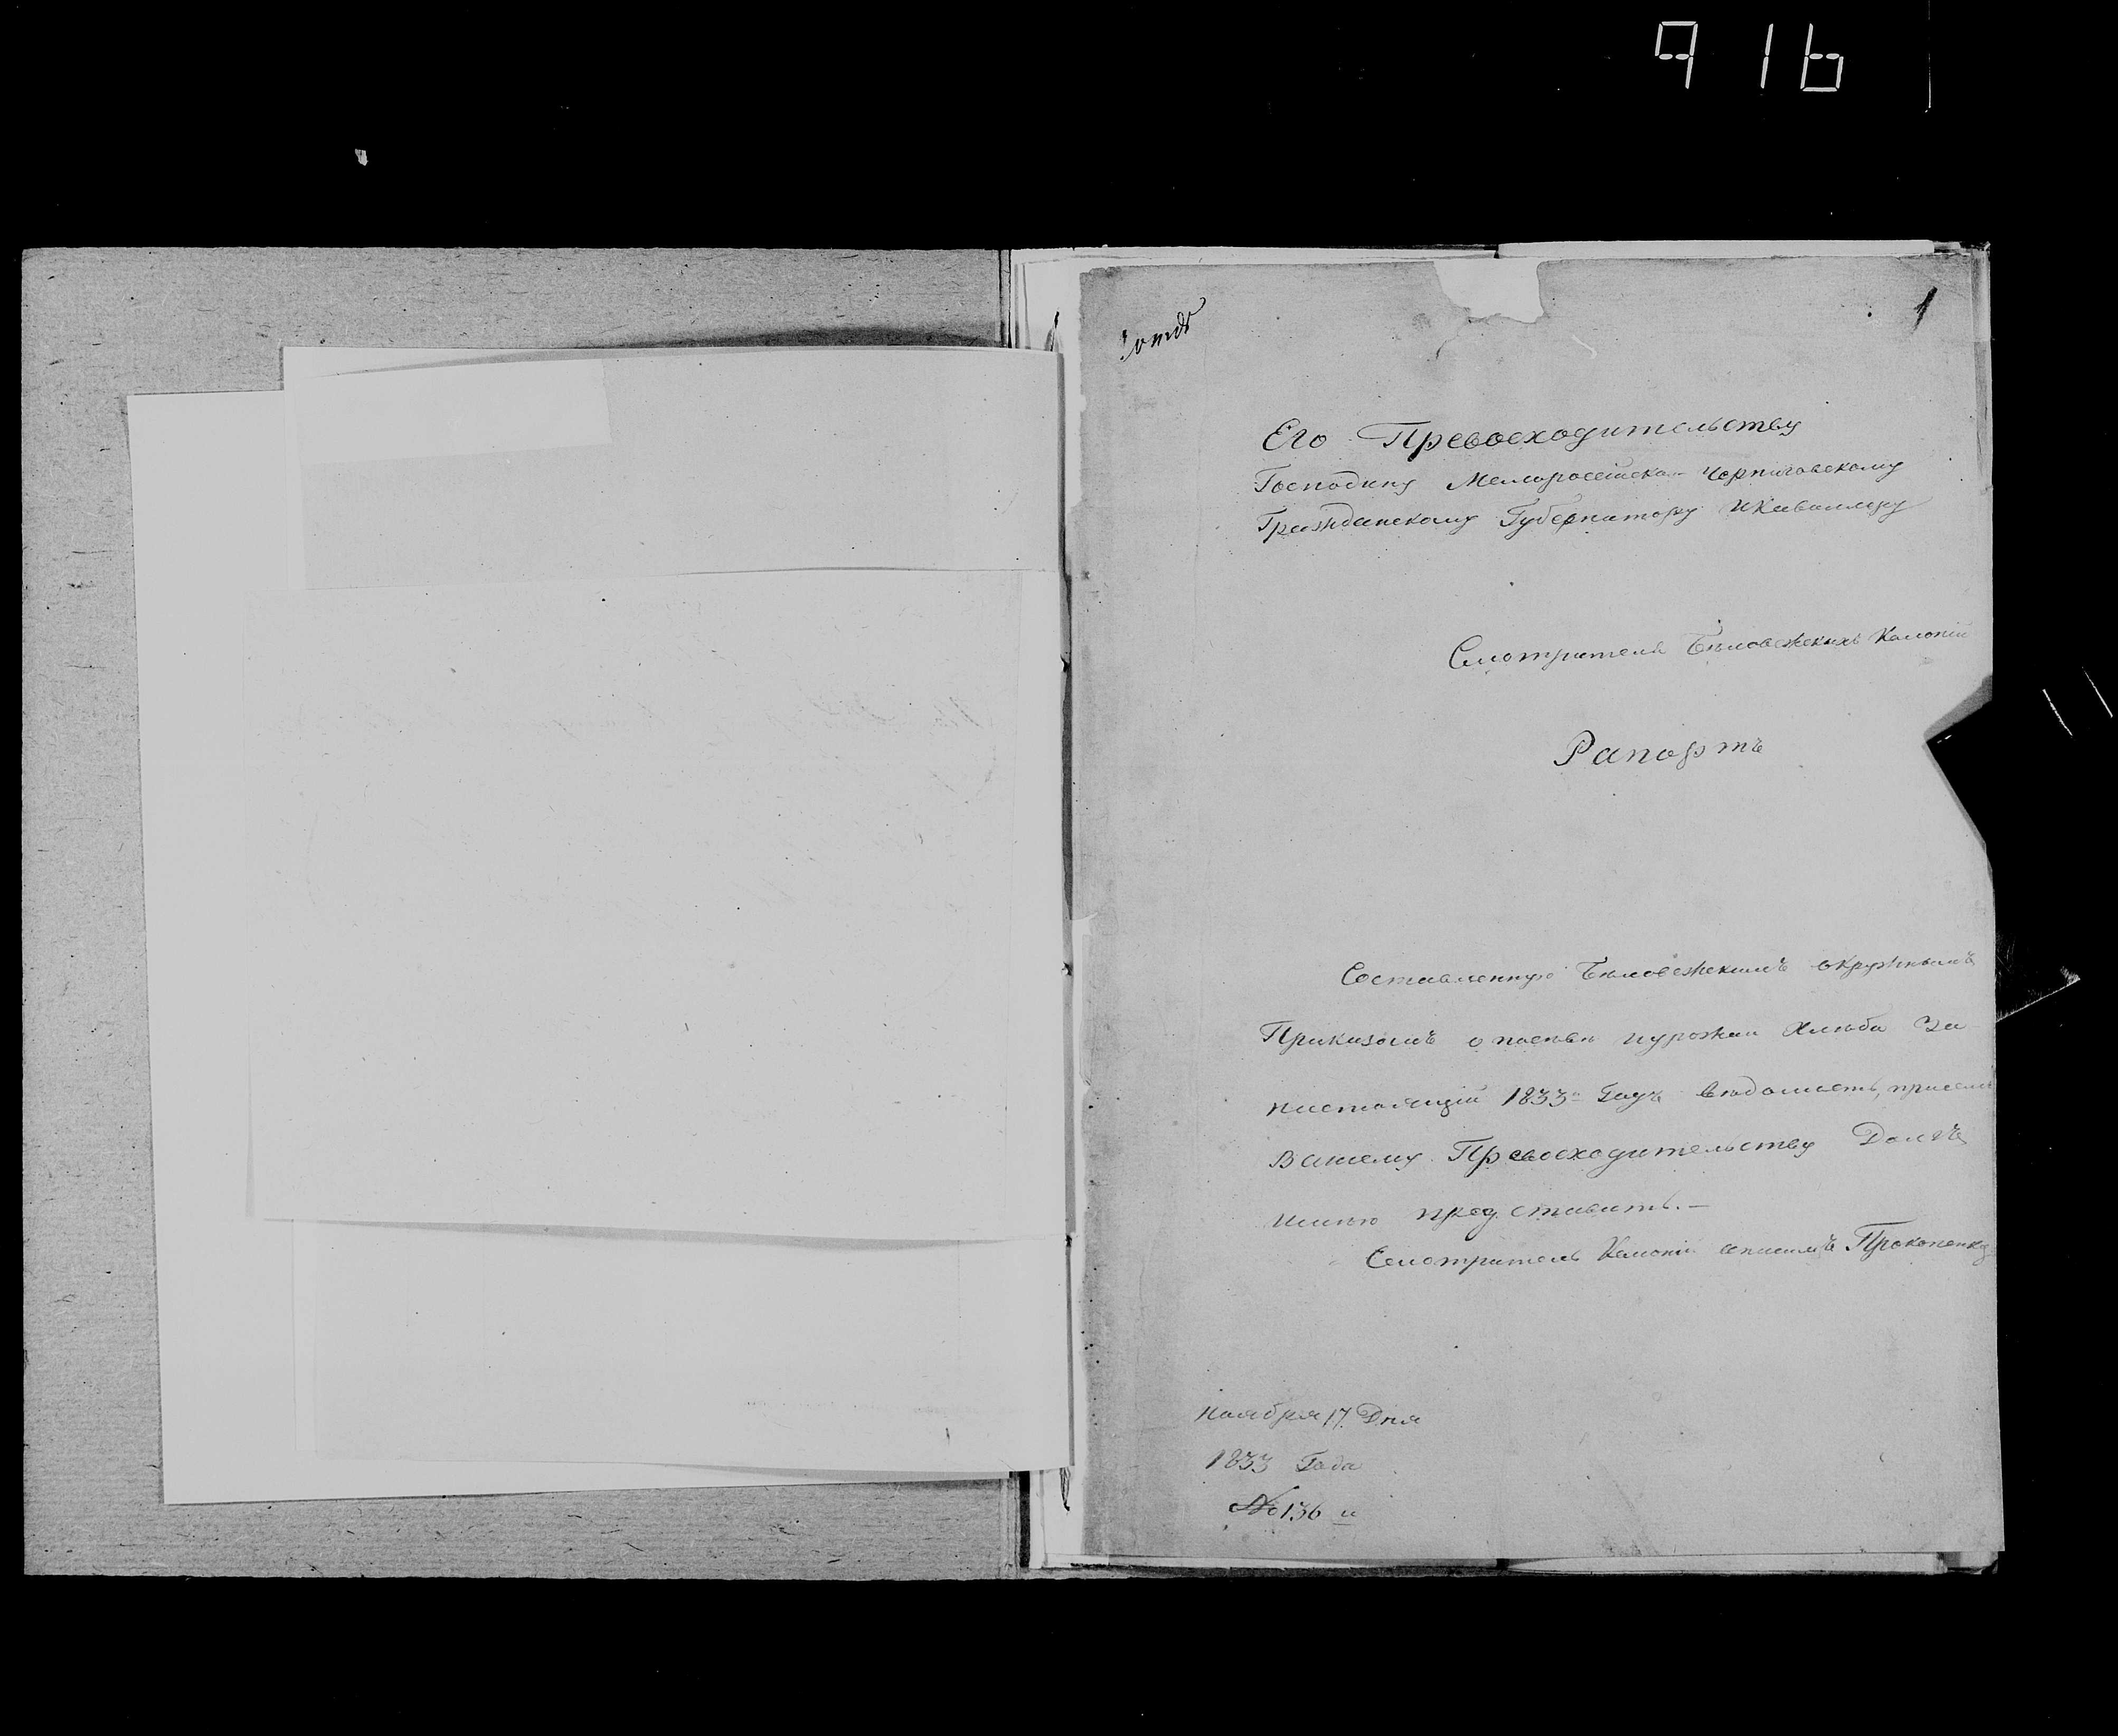 916
1
Его Превосходительству
Господину Малороссійско- Черниговскому
Гражданскому Губернатору и Кавалеру
Смотрителя Бѣловежскихъ Колоній
Рапортъ
Составленную Бѣловежскимъ окружнымъ
Приказомъ о посѣвѣ иурожаи Хлѣба За
настоящій 1833й Годъ вѣдомость, при семъ
Вашему Превосходительству Долгъ
имѣю представить.—
Смотритель Колоній Прокопенко
Ноября 17 Дня
1833 Года
№ 136 й